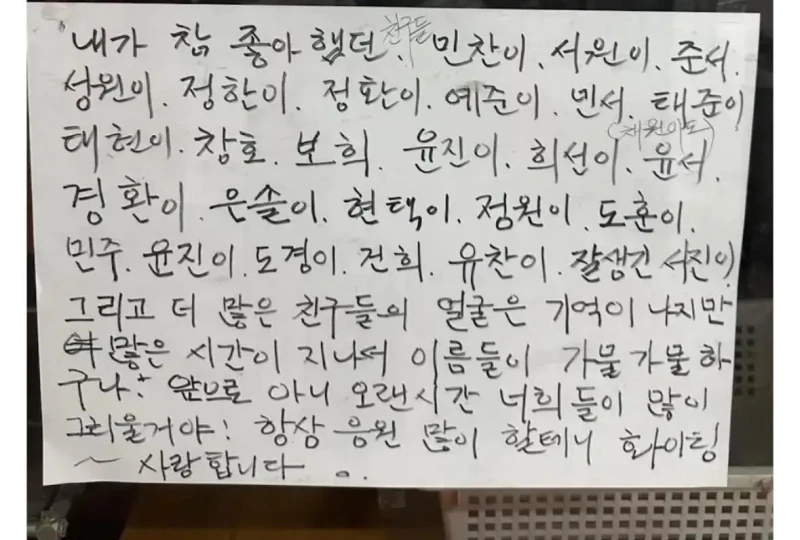 내가 참 좋아했던 친구들 민찬이. 서원이. 준서.
성원이. 정한이. 정환이. 예준이. 민서. 태준이
태현이. 창호. 보희. 윤진이. 희선이. (채원이도) 윤서.
경환이. 은솔이. 현택이. 정원이. 도훈이.
민주. 윤진이. 도경이. 건희. 유찬이. 잘생긴 서진이)
그리고 더 많은 친구들의 얼굴은 기억이 나지만
많은 시간이 지나서 이름들이 가물가물하
구나! 앞으로 아니 오랜시간 너희들이 많이
그리울거야! 항상 응원 많이 할테니 화이팅
~ 사랑합니다